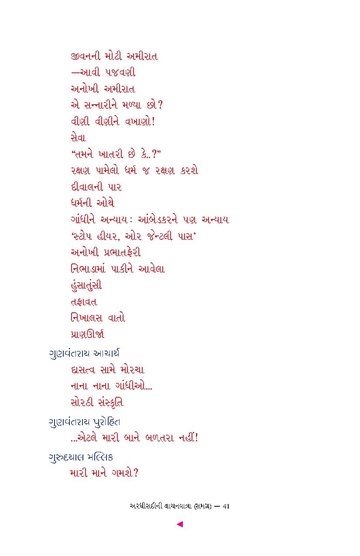 જીવનની મોટી અમીરાત
—આવી પજવણી
અનોખી અમીરાત
એ સન્નારીને મળ્યા છો?
વીણી વીણીને વખાણો!
સેવા
“તમને ખાતરી છે કે..?”
રક્ષણ પામેલો ધર્મ જ રક્ષણ કરશે
દીવાલની પાર
ધર્મની ઓથે
ગાંધીને અન્યાય: આંબેડકરને પણ અન્યાય
‘સ્ટોપ હીયર, ઓર જેન્ટલી પાસ’
અનોખી પ્રભાતફેરી
નિભાડામાં પાકીને આવેલા
હુંસાતુંસી
તફાવત
નિખાલસ વાતો
પ્રાણઊર્જા
ગુણવંતરાય આચાર્ય
દાસત્વ સામે મોરચા
નાના નાના ગાંધીઓ...
સોરઠી સંસ્કૃતિ
ગુણવંતરાય પુરોહિત
...એટલે મારી બાને બળતરા નહીં!
ગુરુદયાલ મલ્લિક
મારી માને ગમશે?
અરધીસદીની વાચનયાત્રા (સમગ્ર) — 41